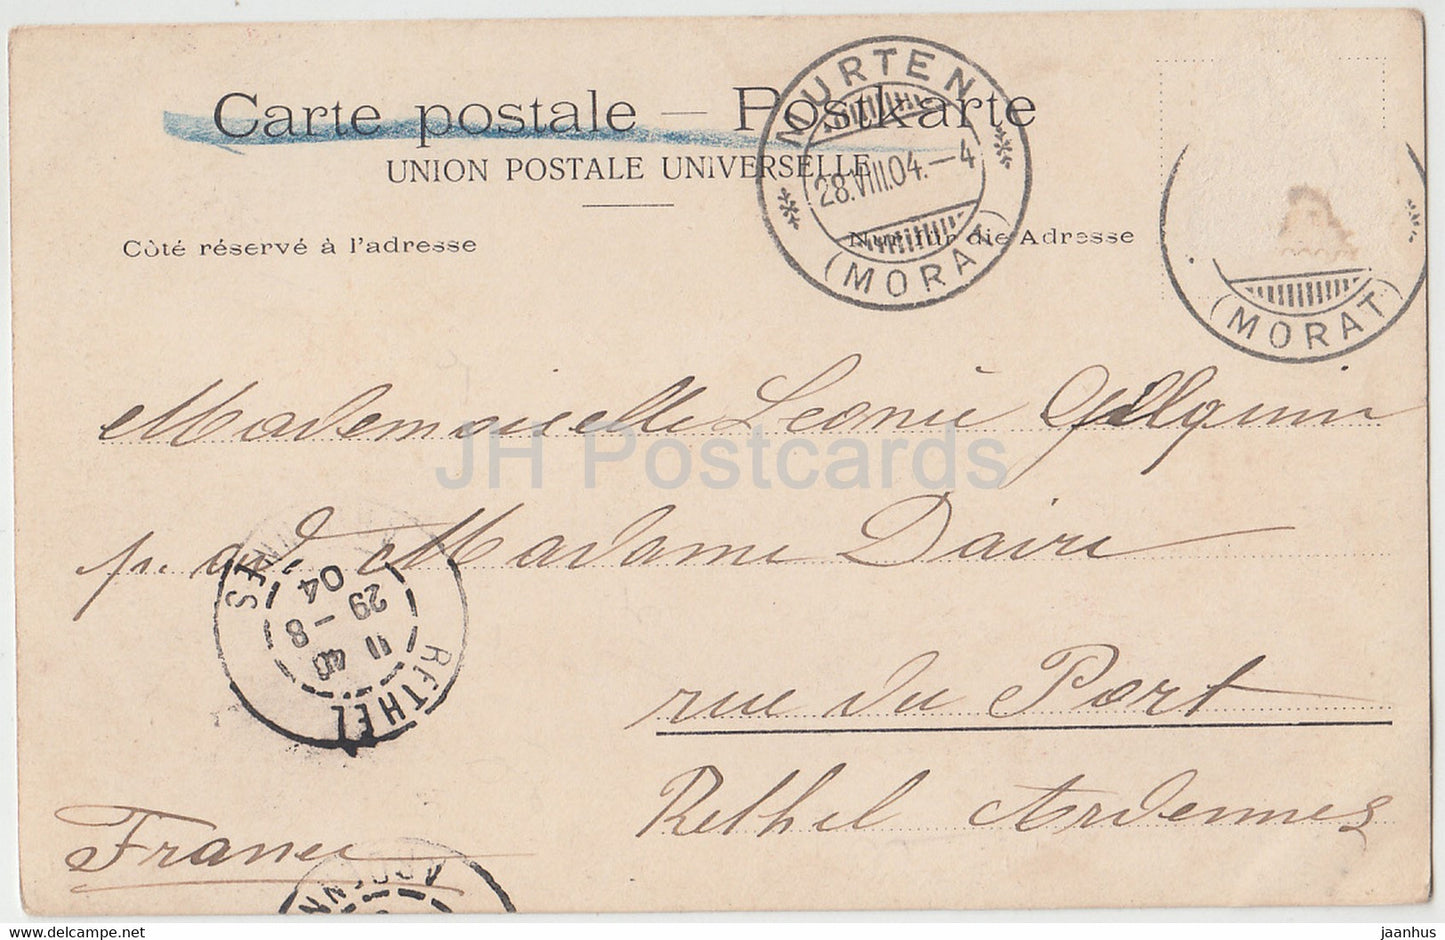 Carte postale — Postkarte
UNION POSTALE UNIVERSELLE
MURTEN
28.VIII.04.—4
(MORAT)
(MORAT)
Côté réservé à l'adresse
Nur für die Adresse
Mademoiselle Léonie Gilquin
JH Postcards
p. ad. Madame Daire
rue du Port
Rethel Ardennes
France
RETHEL
11 40
29 - 8
04
ARDENNES
jaanhus
delcampe.net